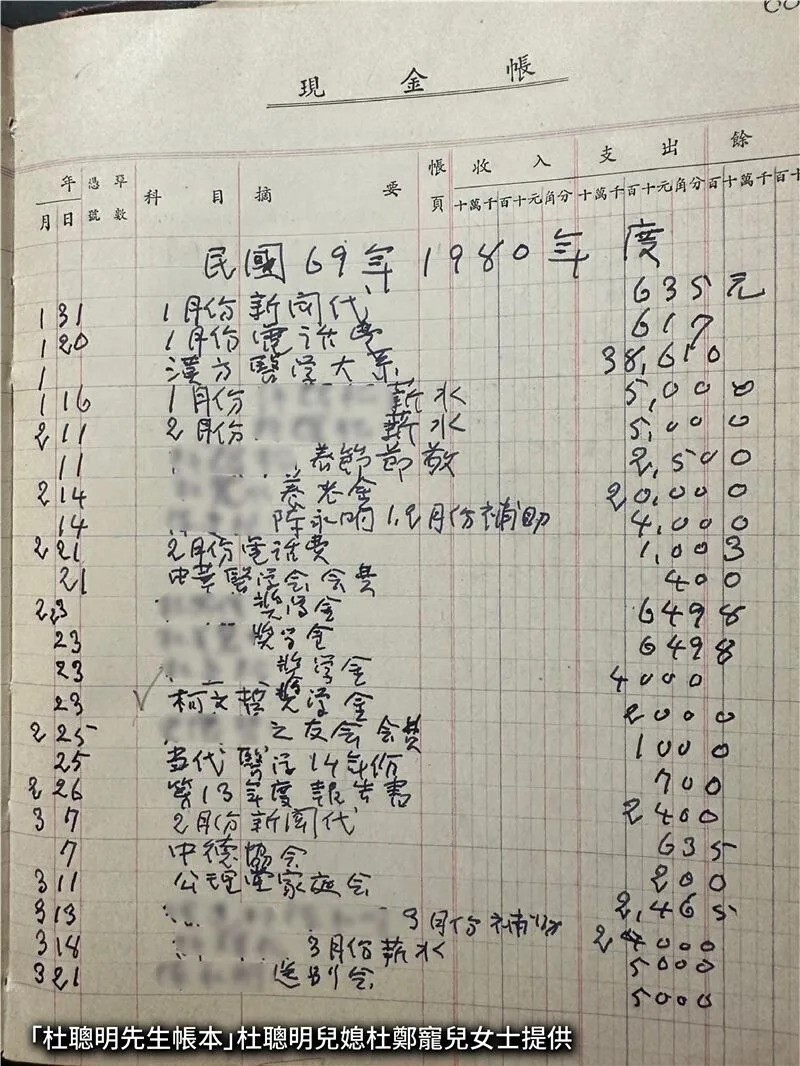 現金帳
年 憑 單 科 目 摘 要 帳 收 入 支 出 餘
月 日 號 數 頁 十萬千百十元角分 十萬千百十元角分 百十萬千百十
民國69年 1980年度
1 31 1月份新闻代 635元
1 20 1月份電话費 617
1 漢方醫学大系 38,610
1 16 1月份 薪水 5,000
2 11 2月份 薪水 5,000
11 節敬 2,500
2 14 養老金 20,000
14 陳永明1,2月份補助 4,000
2 21 2月份電话費 1,003
21 中華醫学会会费 400
2 23 奨学金 6498
23 奨学金 6498
23 奨学金 4000
23 柯文哲奨学金 2000
2 25 之友会会费 1000
25 当代醫学14年份 700
2 26 第13年度報告書 2400
3 7 2月份新闻代 635
7 中德協会 200
3 11 公理堂家庭会 2,465
3 13 3月份補助 2000
3 18 3月份薪水 5000
3 21 送别会 5000
「杜聰明先生帳本」杜聰明兒媳杜鄭寵兒女士提供